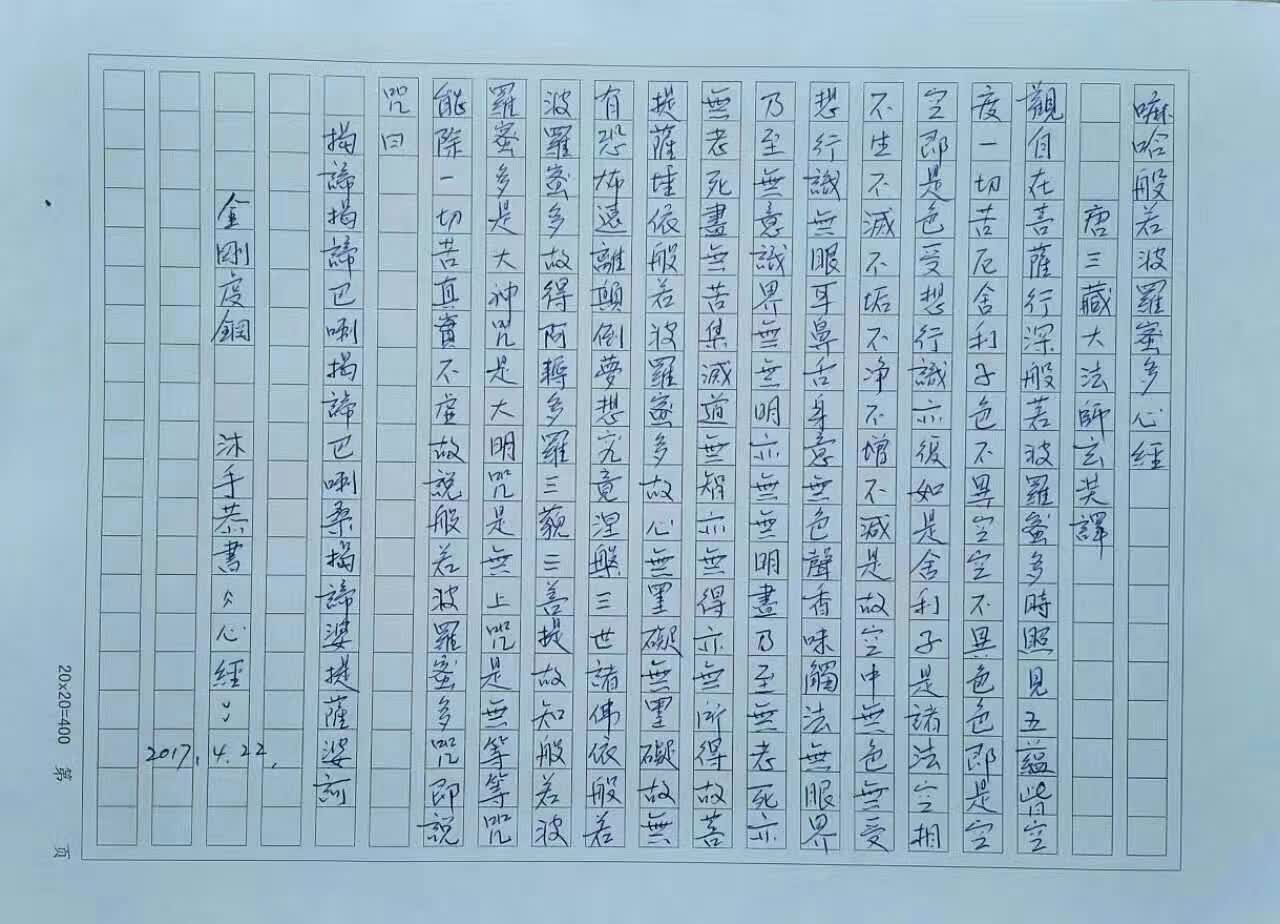 嘛哈般若波羅蜜多心經
唐三藏大法師玄奘譯
觀自在菩薩行深般若波羅蜜多時照見五蘊皆空
度一切苦厄舍利子色不異空空不異色色即是空
空即是色受想行識亦復如是舍利子是諸法空相
不生不滅不垢不净不增不減是故空中無色無受
想行識無眼耳鼻舌身意無色聲香味觸法無眼界
乃至無意識界無無明亦無無明盡乃至無老死亦
無老死盡無苦集滅道無智亦無得亦無所得故菩
提薩埵依般若波羅蜜多故心無罣礙無罣礙故無
有恐怖遠離顛倒夢想究竟涅槃三世諸佛依般若
波羅蜜多故得阿耨多羅三藐三菩提故知般若波
羅蜜多是大神咒是大明咒是無上咒是無等等咒
能除一切苦真實不虛故說般若波羅蜜多咒即說
咒曰
揭諦揭諦巴喇揭諦巴喇桑揭諦婆提薩婆訶
金剛度鋼 沐手恭書《心經》
2017.4.22.
20×20=400 第 页